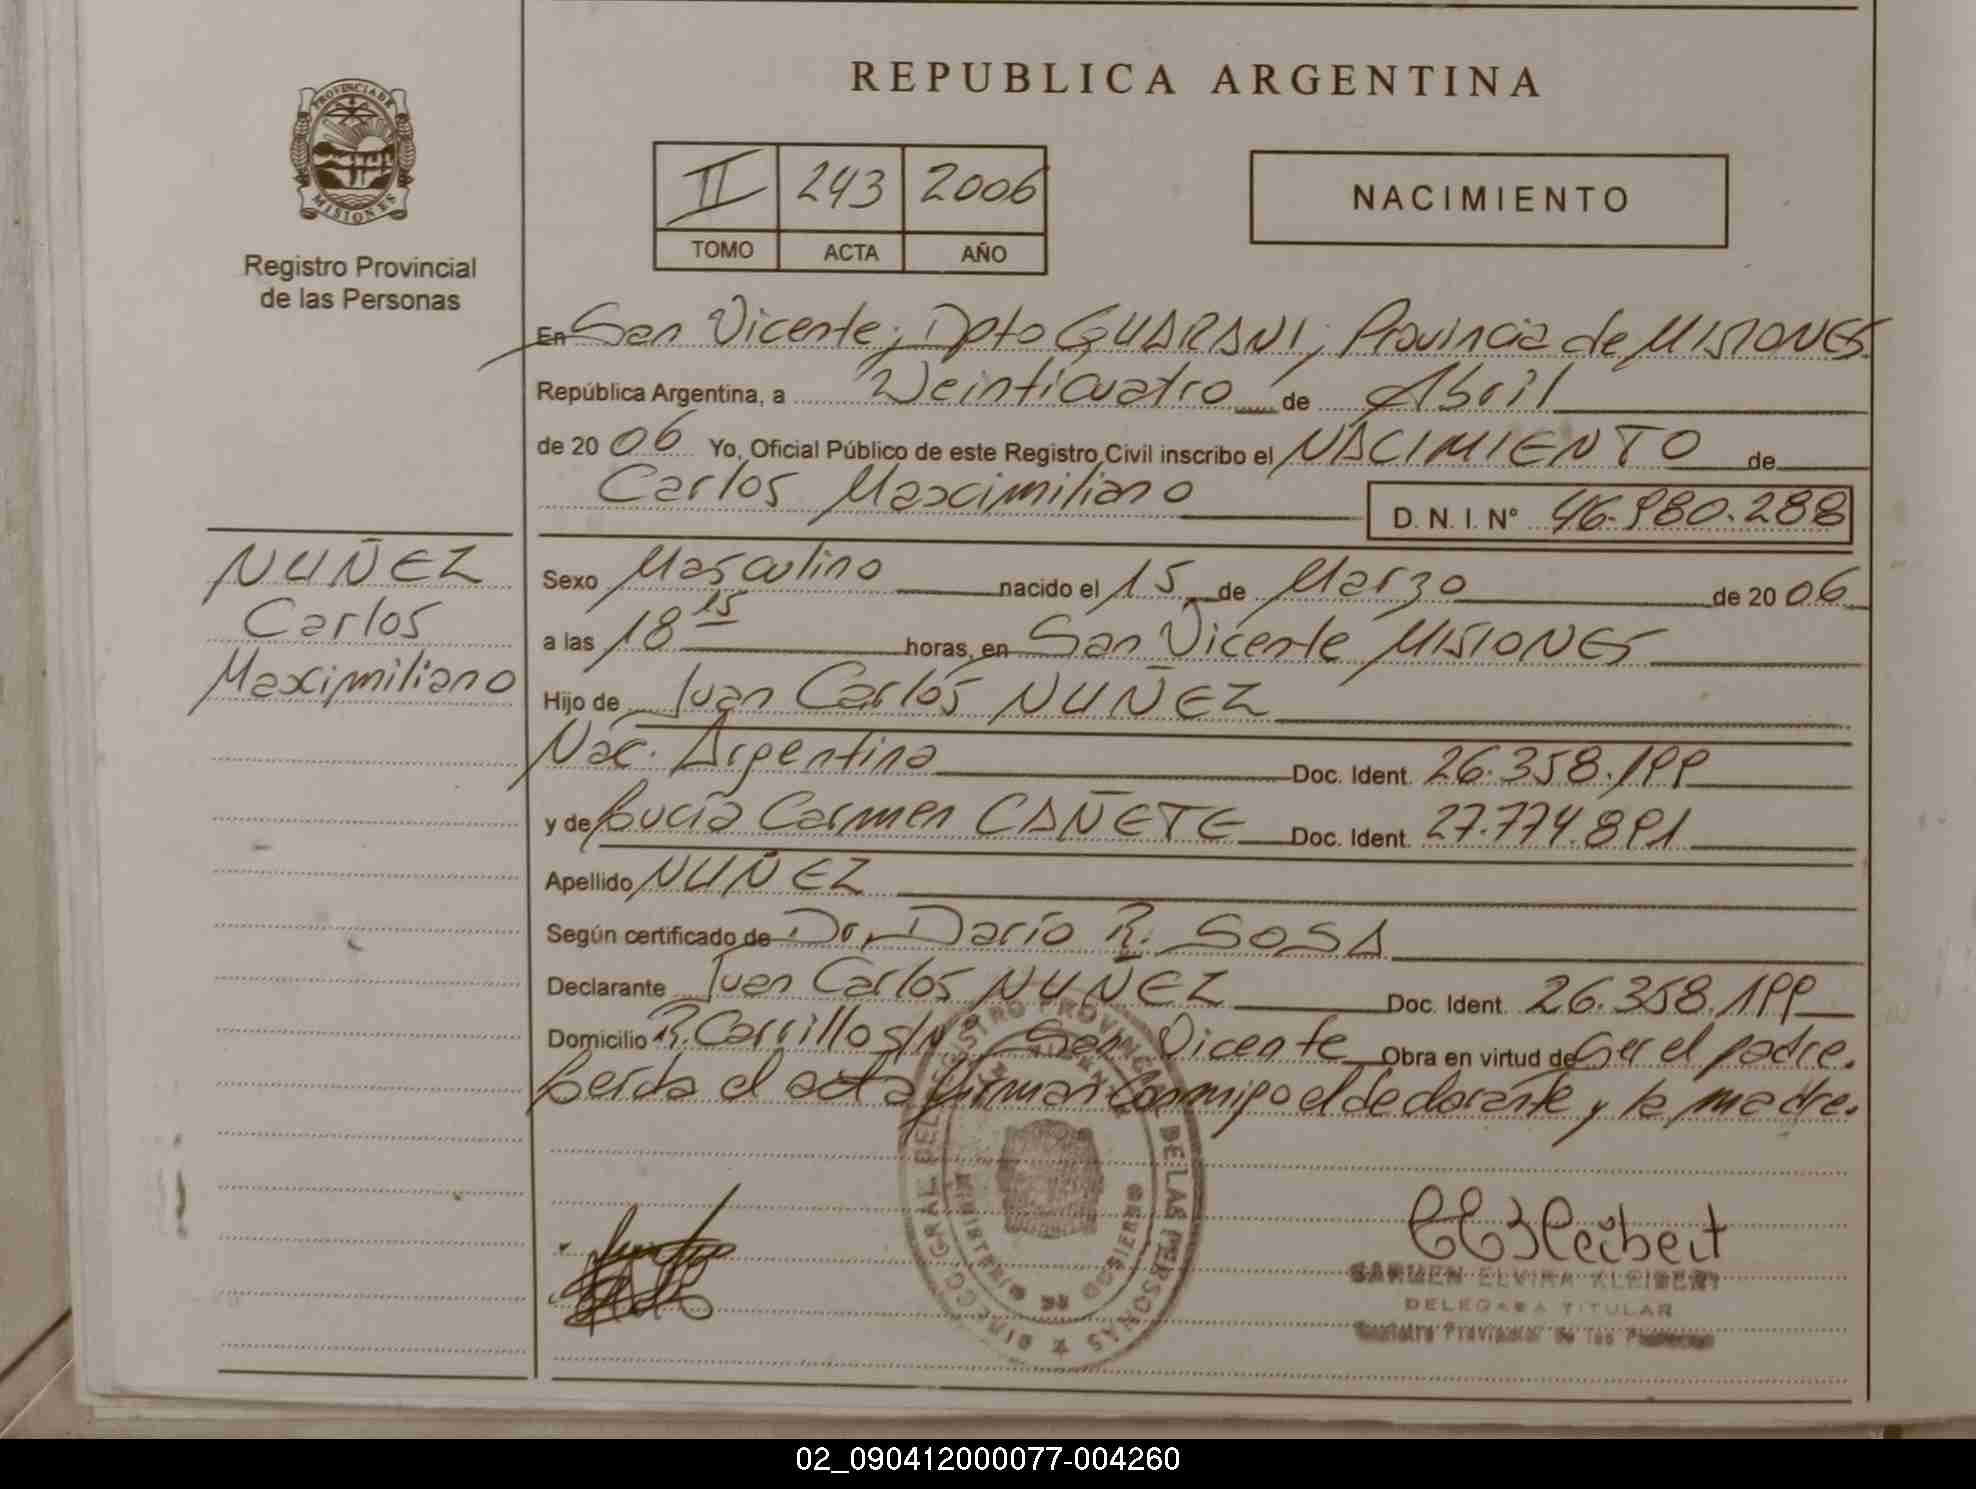 REPUBLICA ARGENTINA
PROVINCIA DE
MISIONES
Registro Provincial
de las Personas
II 243 2006
TOMO ACTA AÑO
NACIMIENTO
En San Vicente; Dpto GUARANI; Provincia de MISIONES
República Argentina, a Veinticuatro de Abril
de 2006 Yo, Oficial Público de este Registro Civil inscribo el NACIMIENTO de
Carlos Maximiliano
D. N. I. Nº 46.980.288
NUÑEZ
Carlos
Maximiliano
Sexo Masculino nacido el 15 de Marzo de 2006
a las 18 15 horas, en San Vicente MISIONES
Hijo de Juan Carlos NUÑEZ
Nac. Argentina Doc. Ident. 26.358.199
y de Lucía Carmen CAÑETE Doc. Ident. 27.774.891
Apellido NUÑEZ
Según certificado de Dr. Darío R. SOSA
Declarante Juan Carlos NUÑEZ Doc. Ident. 26.358.199
Domicilio R. Carrillo s/Nº San Vicente Obra en virtud de Ser el padre.
Leída el acta firman conmigo el declarante y la madre.
CEKleibert
CARMEN ELVIRA KLEIBERT
DELEGADA TITULAR
Registro Provincial de las Personas
DIRECC. GRAL DEL REGISTRO PROVINCIAL DE LAS PERSONAS
MINISTERIO DE GOBIERNO
02_090412000077-004260